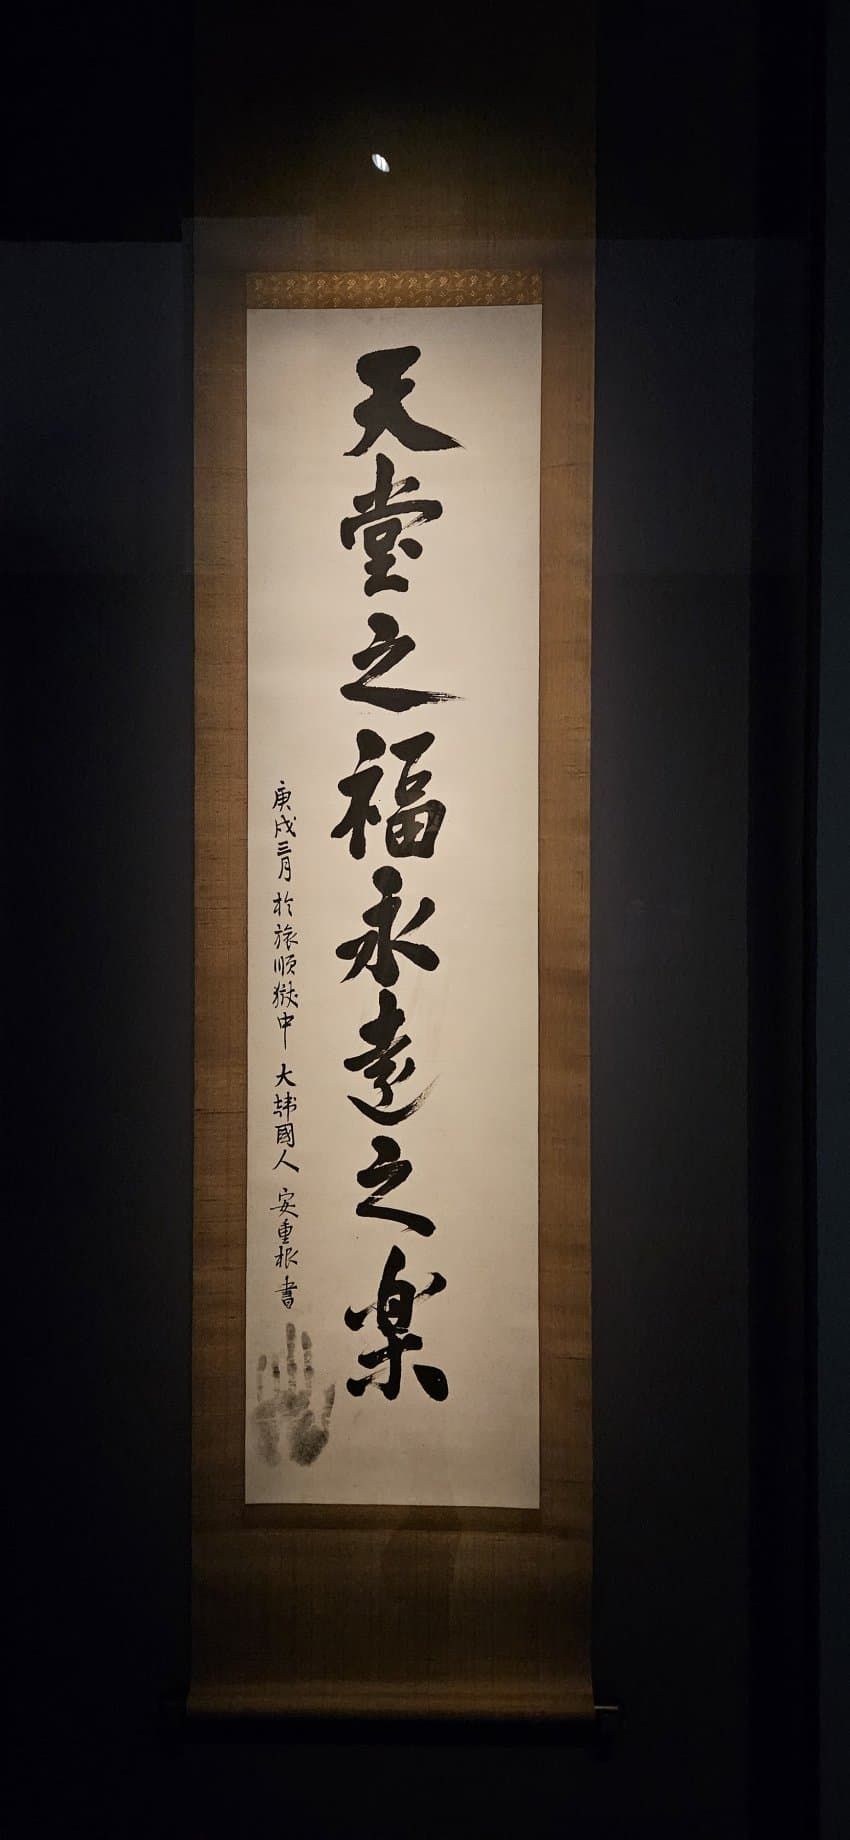 天堂之福永遠之楽
庚戌三月 於旅順獄中 大韓國人 安重根 書